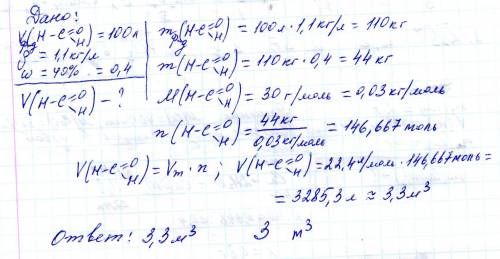 Дано:
V(H-C=O H)=100л
ρ=1,1кг/л
ω=40% =0,4
V(H-C=O H)-?
m р-р(H-C=O H)=100л·1,1кг/л=110кг
m(H-C=O H)=110кг·0,4=44кг
M(H-C=O H)=30г/моль=0,03кг/моль
n(H-C=O H)=44кг/0,03кг/моль=146,667моль
V(H-C=O H)=Vm·n; V(H-C=O H)=22,4л/моль·146,667моль=
=3285,3л≈3,3м³
Ответ: 3,3м³ 3 m³